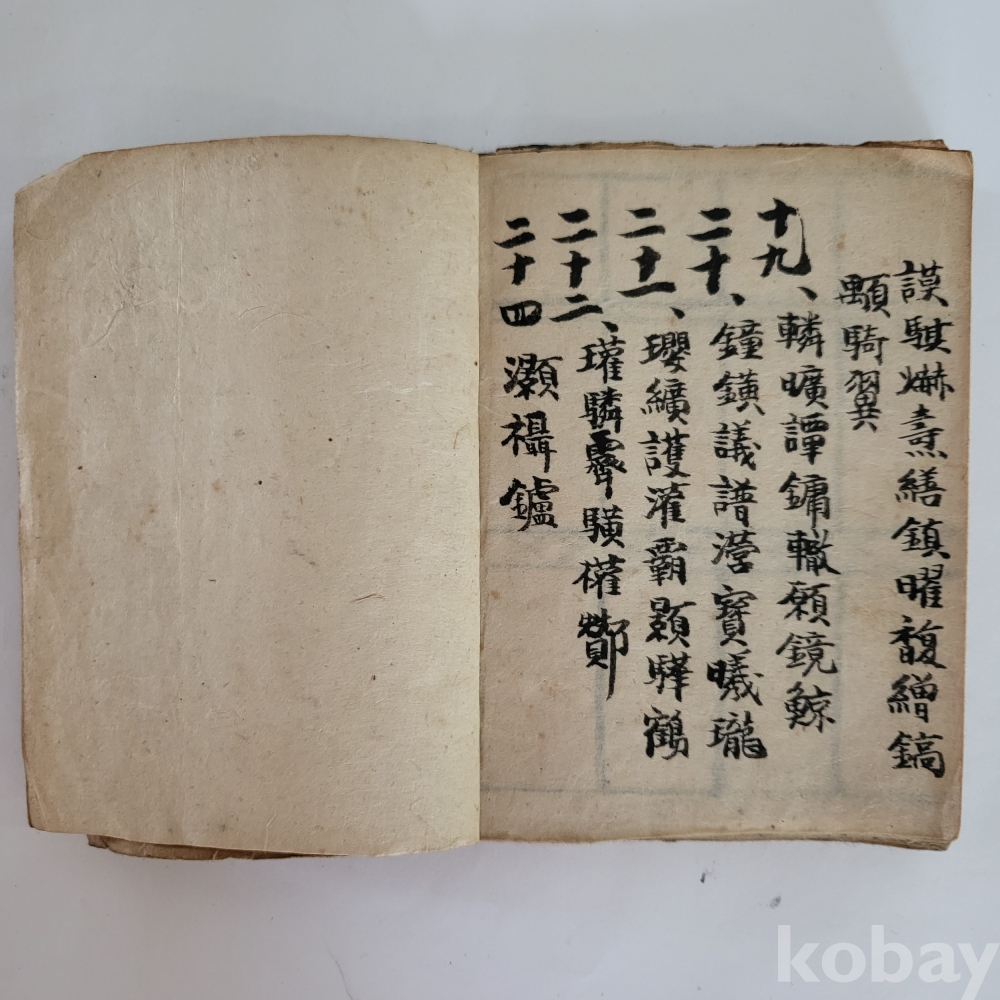 謨騏爀燾繕鎮曜馥繒鎬
顒騎翼
十九、轔曠譚鏞轍願鏡鯨
二十、鐘鐄議譜瀯寶曦瓏
二十一、瓔纊護灌霸顥驊鶴
二十二、瓘驎霽驥權酇
二十四 灝襵鑪
kobay